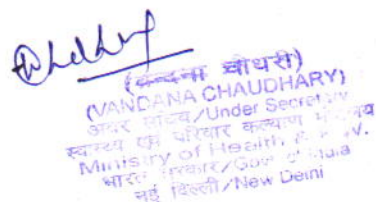 (वन्दना चौधरी)
(VANDANA CHAUDHARY)
अवर सचिव/Under Secretary
स्वास्थ्य एवं परिवार कल्याण मंत्रालय
Ministry of Health & F.W.
भारत सरकार/Govt of India
नई दिल्ली/New Delhi